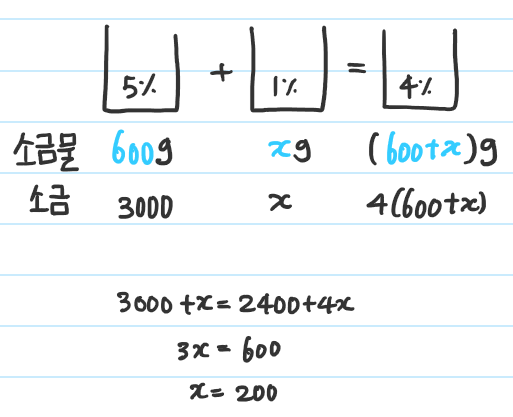 5% + 1% = 4%
소금물 600g xg (600+x)g
소금 3000 x 4(600+x)
3000+x=2400+4x
3x=600
x=200